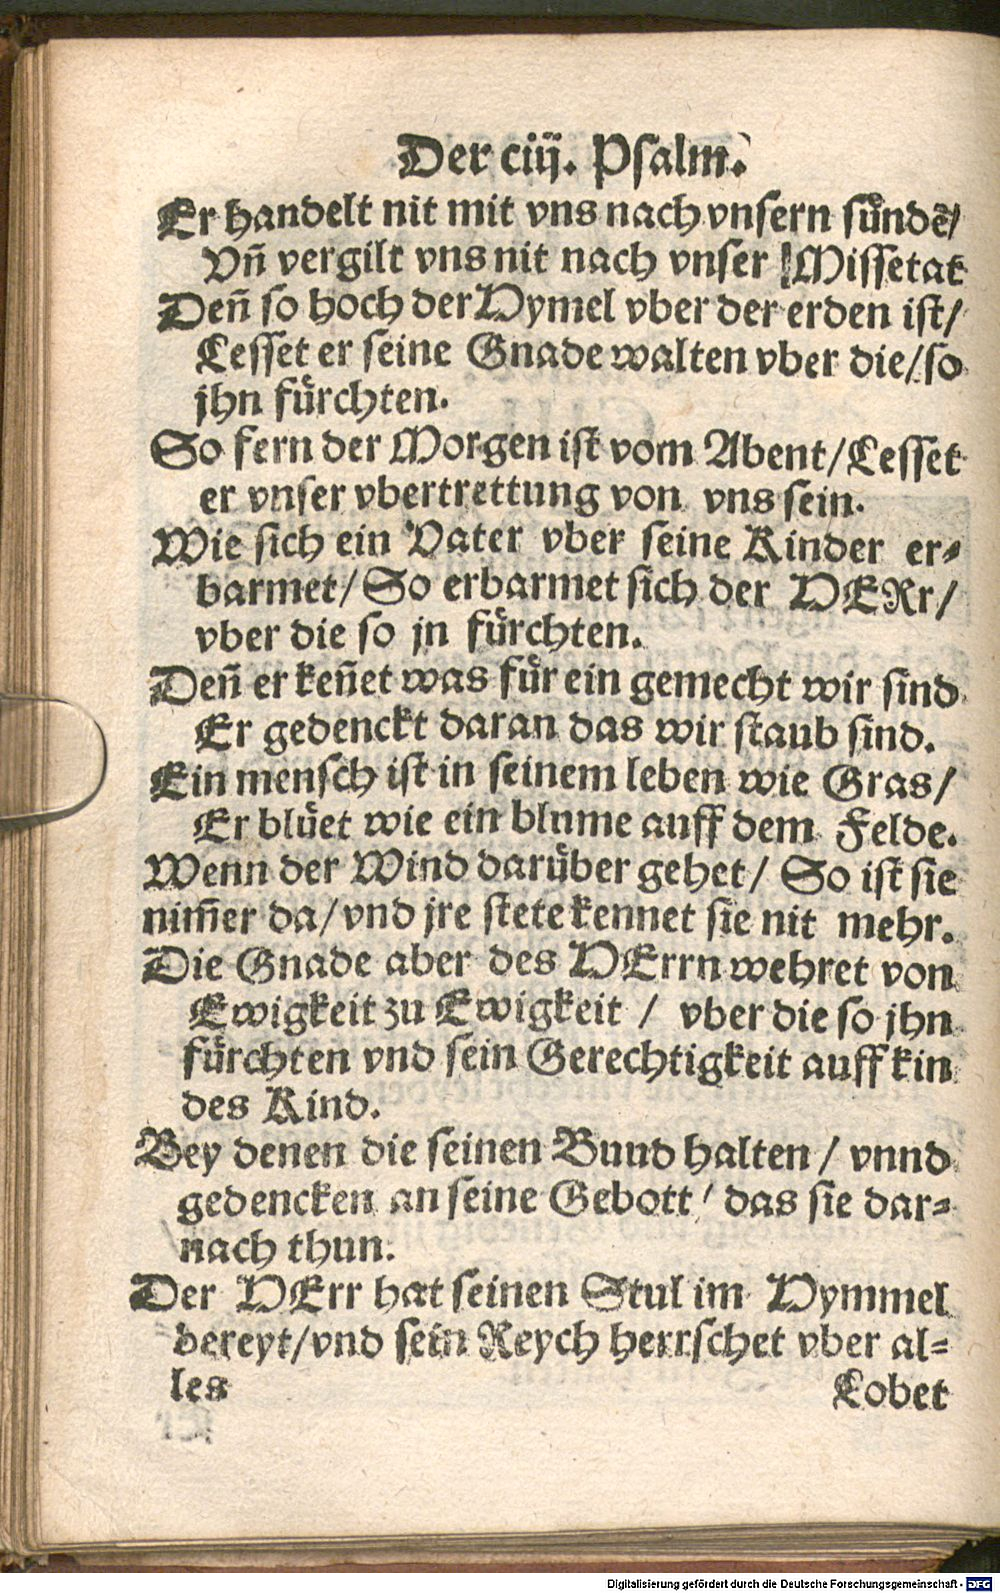 Der ciij. Psalm.
Er handelt nit mit vns nach vnsern sůndẽ/
Vñ vergilt vns nit nach vnser Missetat
Deñ so hoch der Hymel vber der erden ist/
Lesset er seine Gnade walten vber die/so
jhn fuͤrchten.
So fern der Morgen ist vom Abent/Lesset
er vnser vbertrettung von vns sein.
Wie sich ein Vater vber seine Kinder er-
barmet/So erbarmet sich der HERr/
vber die so jn fuͤrchten.
Deñ er keñet was fuͤr ein gemecht wir sind
Er gedenckt daran das wir staub sind.
Ein mensch ist in seinem leben wie Gras/
Er bluͤet wie ein blnme auff dem Felde.
Wenn der Wind daruͤber gehet/ So ist sie
nim̃er da/vnd jre stete kennet sie nit mehr.
Die Gnade aber des HErrn wehret von
Ewigkeit zu Ewigkeit / vber die so jhn
fuͤrchten vnd sein Gerechtigkeit auff kin
des Kind.
Bey denen die seinen Bund halten / vnnd
gedencken an seine Gebott/ das sie dar-
nach thun.
Der HErr hat seinen Stul im Hymmel
bereyt/vnd sein Reych herrschet vber al-
les
Lobet
Digitalisierung gefördert durch die Deutsche Forschungsgemeinschaft - DFG